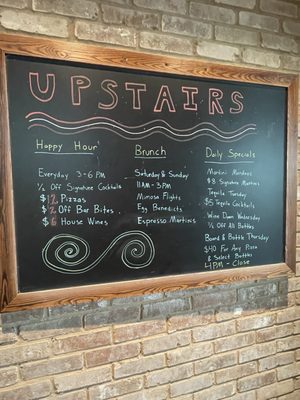 UPSTAIRS
Happy Hour
Everyday 3-6 PM
½ Off Signature Cocktails
$12 Pizzas
$2 Off Bar Bites
$6 House Wines
Brunch
Saturday & Sunday
11AM-3PM
Mimosa Flights
Egg Benedicts
Espresso Martinis
Daily Specials
Martini Mondays
$8 Signature Martinis
Tequila Tuesday
$5 Tequila Cocktails
Wine Down Wednesday
½ Off All Bottles
Board & Bottle Thursday
$40 For Any Pizza
& Select Bottles
4PM - Close